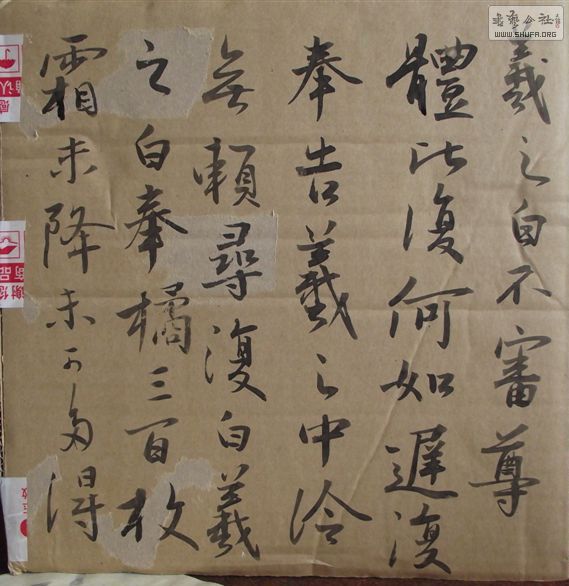 羲之白不審尊
體比復何如遲復
奉告羲之中冷
無賴尋復白羲
之白奉橘三百枚
霜未降未可多得
書藝公社
WWW.SHUFA.ORG